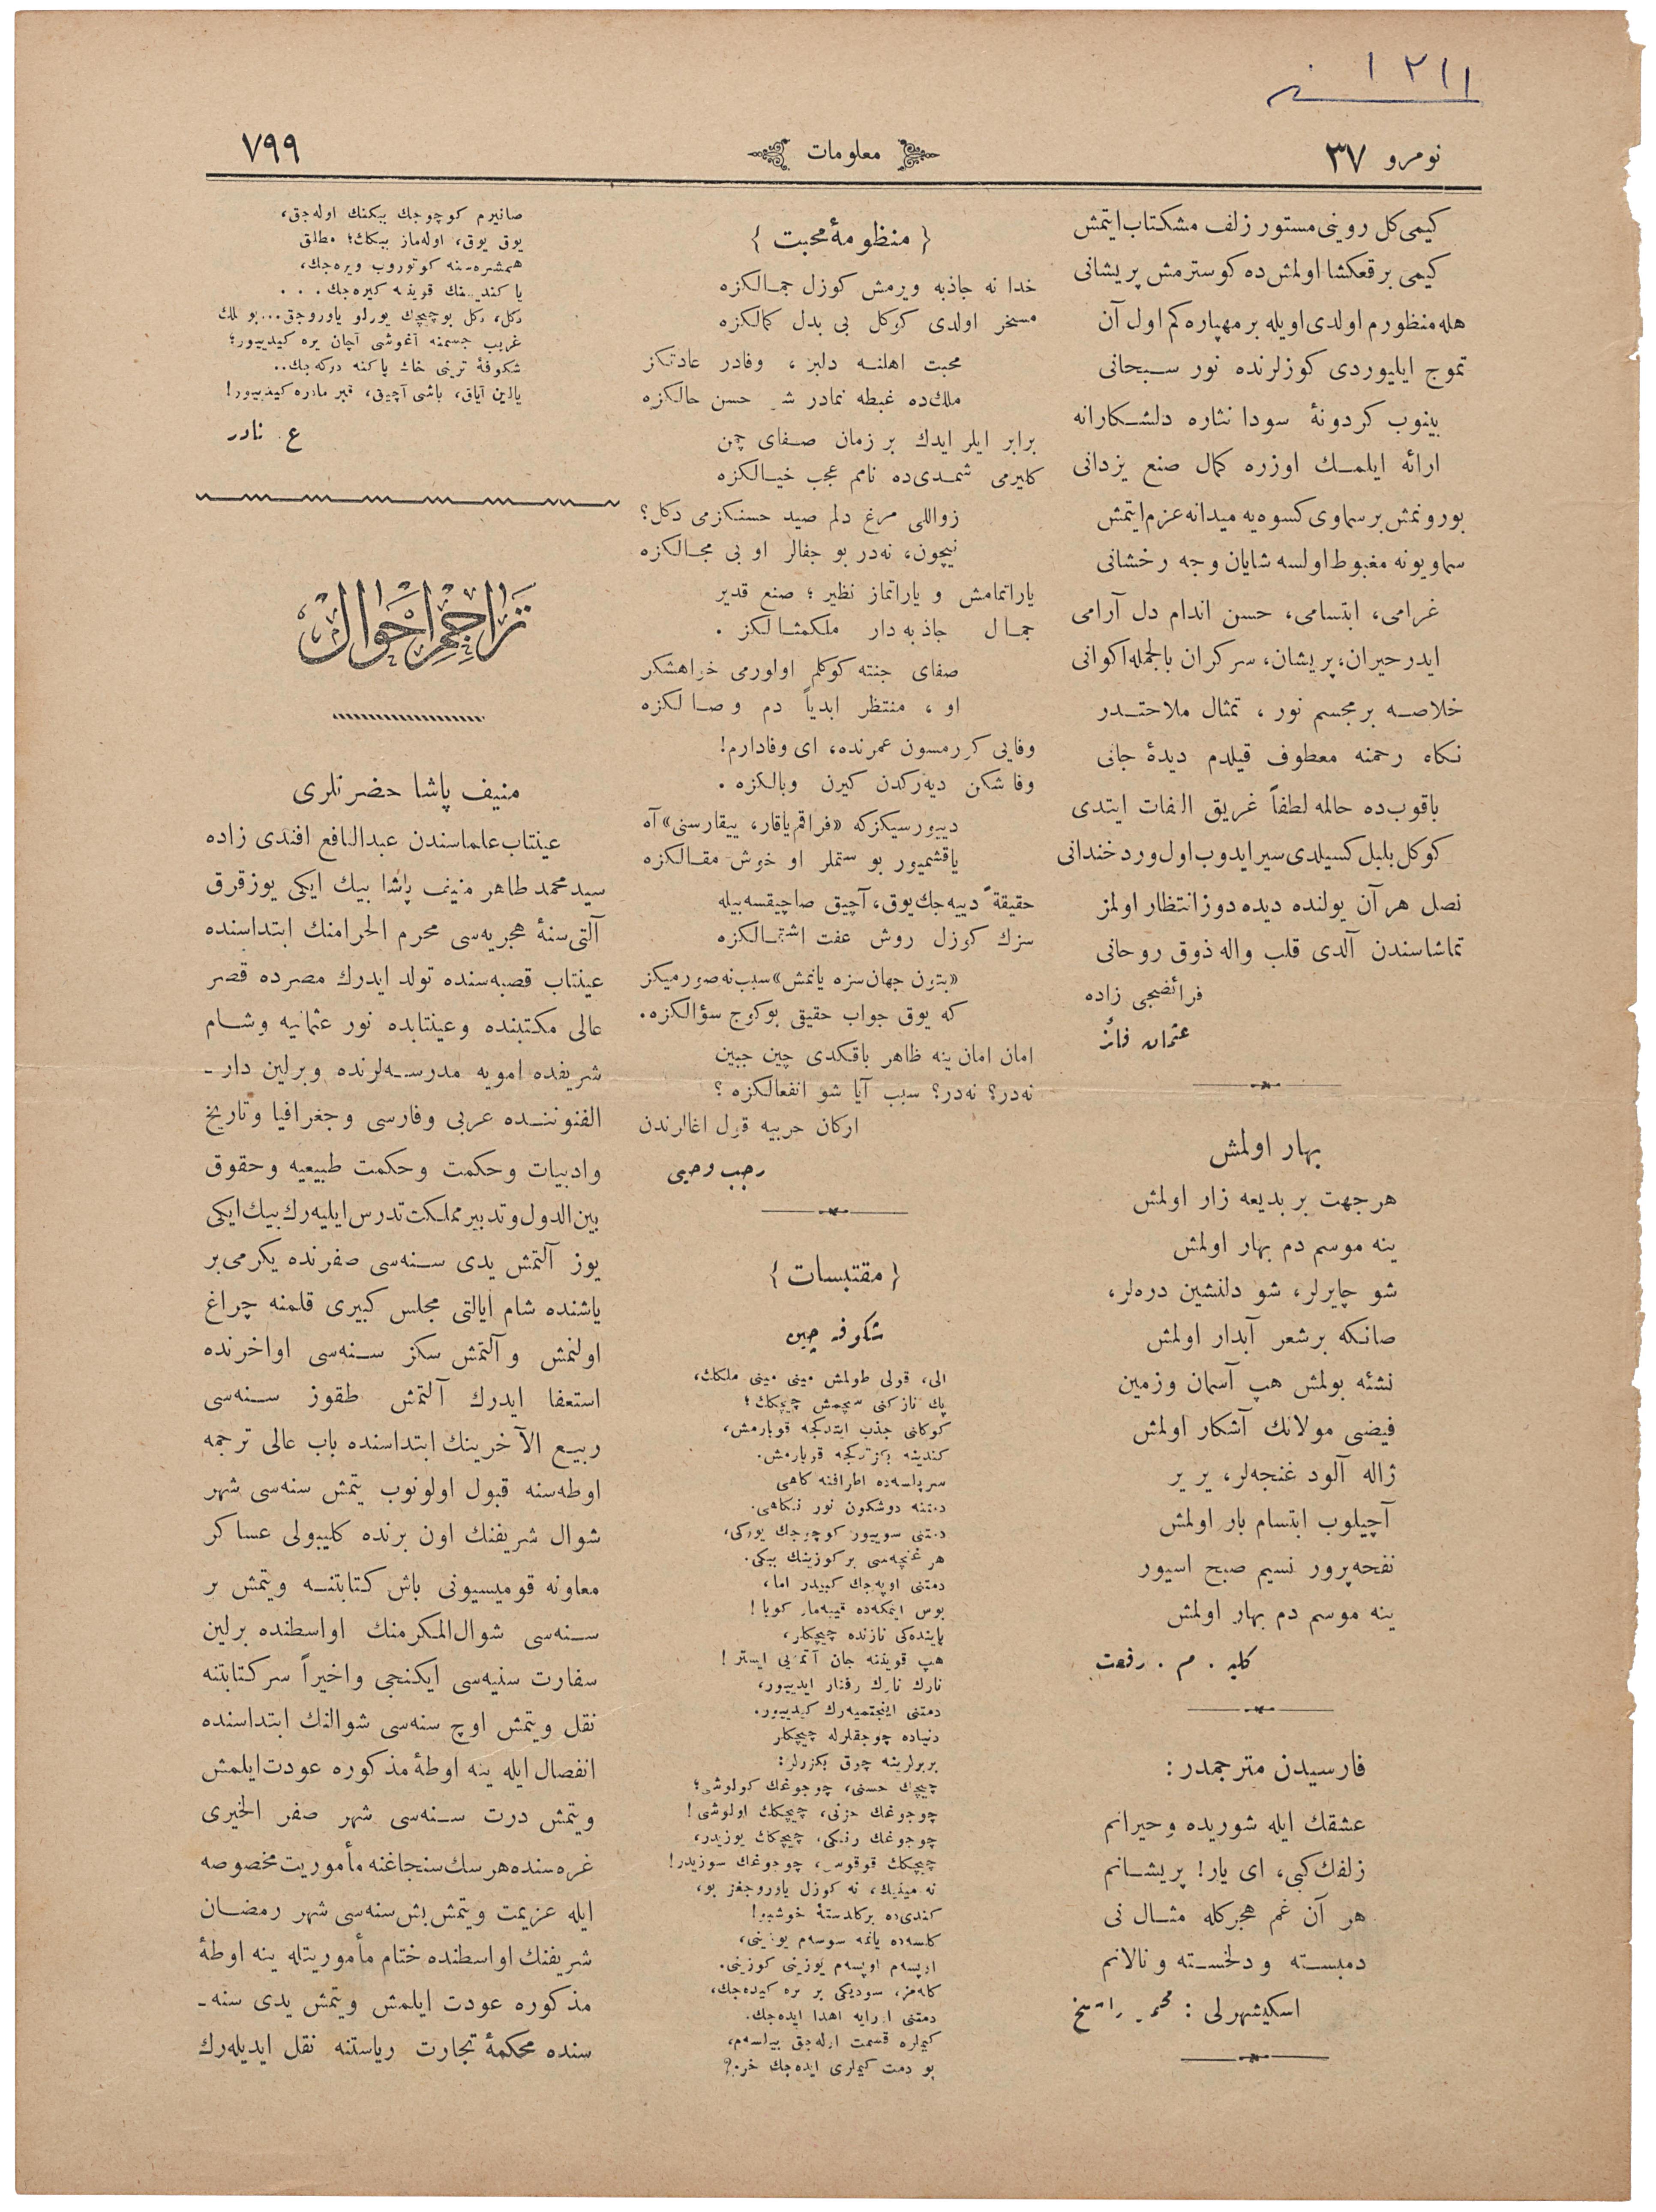 ١٣١١
نومرو ٣٧
معلومات
٧٩٩
كيمی كل روينی مستور زلف مشكتاب ايتمش
كيمی برقعكشا اولمش ده كوسترمش پريشانی
هله منظورم اولدی اويله بر مهپاره كم اول آن
تموج ايليوردی كوزلرنده نور سبحانی
بينوب كردونۀ سودا نثاره دلشكارانه
ارائه ايلمك اوزره كمال صنع يزدانی
بورونمش بر سماوی كسوه‌يه ميدانه عزم ايتمش
سماويونه مغبوط اولسه شايان وجه رخشانی
غرامی، ابتسامی، حسن اندام دل آرامی
ايدر حيران، پريشان، سركران بالجمله اكوانی
خلاصه بر مجسم نور ، تمثال ملاحتدر
نكاه رحمنه معطوف قيلدم ديدۀ جانی
باقوب ده حالمه لطفاً غريق التفات ايتدی
كوكل بلبل كسيلدی سير ايدوب اول ورد خندانی
نصل هر آن يولنده ديده دوز انتظار اولمز
تماشاسندن آلدی قلب واله ذوق روحانی
فرائضجی زاده
عثمان فائز
بهار اولمش
هر جهت بر بديعه زار اولمش
ينه موسم دم بهار اولمش
شو چايرلر، شو دلنشين دره‌لر،
صانكه بر شعر آبدار اولمش
نشئه بولمش هپ آسمان وزمين
فيضی مولانك آشكار اولمش
ژاله آلود غنجه‌لر، ير ير
آچيلوب ابتسام بار اولمش
نفحه‌پرور نسيم صبح اسيور
ينه موسم دم بهار اولمش
كليه . م . رفعت
فارسيدن مترجمدر :
عشقك ايله شوريده وحيرانم
زلفك كبی، ای يار! پريشانم
هر آن غم هجركله مثال نی
دمبسته و دلخسته و نالانم
اسكيشهرلی : محمد راسخ
{ منظومۀ محبت }
خدا نه جاذبه ويرمش كوزل جمالكزه
مسخر اولدی كوكل بی بدل كمالكزه
محبت اهلنه دلبر ، وفادر عادتكز
ملك‌ده غبطه نمادر شو حسن حالكزه
برابر ايلر ايدك بر زمان صفای چمن
كليرمی شمدی‌ده نامم عجب خيالكزه
زواللی مرغ دلم صيد حسنكزمی دكل؟
نيچون، نه‌در بو جفالر او بی مجالكزه
ياراتمامش و ياراتماز نظير ؛ صنع قدير
جمال جاذبه دار ملكمثالكز .
صفای جنته كوكلم اولورمی خواهشكر
او ، منتظر ابدياً دم وصالكزه
وفايی كورمسون عمرنده، ای وفادارم!
وفا شكن ديه‌ركدن كيرن وبالكزه .
دييورسيكزكه «فراقم ياقار، ييقارسنی» آه
ياقشميور بو ستملر او خوش مقالكزه
حقيقةً دييه‌جك يوق، آچيق صاچيقسه بيله
سزك كوزل روش عفت اشتمالكزه
«بتون جهان سزه يانمش» سبب نه صورميكز
كه يوق جواب حقيقی بوكوج سؤالكزه.
امان امان ينه ظاهر باقكدی چين جبين
نه‌در؟ نه‌در؟ سبب آيا شو انفعالكزه ؟
اركان حربيه قول اغالرندن
رجب وحيی
{ مقتبسات }
شكوفه چين
الی، قولی طولمش مينی مينی ملكك،
پك نازكنی سچمش چيچكك ؛
سرپلسه‌ده اطرافنه كاهی
دمتنه دوشكون نور نكاهی.
دمتنی سوييور كوچوجك يوركی،
هر غنچه‌سی بر كوزينك ببكی.
دمتنی اوپه‌جك كبيدر اما،
بوس ايتمكه‌ده قييه‌ماز كويا !
پاينده‌كی نازنده چيچكلر،
هپ قوينه جان آتمه‌يی ايستر !
نازك نازك رفتار ايدييور،
دمتنی اينجتميه‌رك كيدييور.
دنياده چوجقلرله چيچكلر
بربرلرينه چوق بكزرلر:
چيچك حسنی، چوجوغك كولوشی؛
چوجوغك حزنی، چيچكك اولوشی !
چوجوغك رنكی، چيچكك يوزيدر،
چيچكك قوقوسی، چوجوغك سوزيدر!
نه مينيك، نه كوزل ياوروجغز بو،
كندی‌ده بر كلدستۀ خوشبو!
كلسه‌ده يانمه سوسه‌م يوزينی،
اوپسه‌م اوپسه‌م يوزينی كوزينی.
كله‌مز، سوديكی بر يره كيده‌جك،
دمتنی اورايه اهدا ايده‌جك.
كيملره قسمت اوله‌جق بيلسه‌م،
بو دمت كيملری ايده‌جك خرم؟
صانيرم كوچوجك ببكنك اوله‌جق،
يوق يوق، اوله‌ماز ببكك؛ مطلق
همشيره‌سنه كوتوروب ويره‌جك،
يا كندیسنك قوينه كيره‌جك . . .
دكل، دكل بوچيچك يورلو ياوروجق... بو ملك
غريب جسمنه آغوشی آچان يره كيدييور؛
شكوفۀ ترينی خاك پاكنه دوكه‌جك..
يالين آياق، باشی آچيق، قبر مادره كيدييور!
ع. نادر
تراجم احوال
منيف پاشا حضرتلری
عينتاب علماسندن عبدالنافع افندی زاده
سيد محمد طاهر منيف پاشا بيك ايكی يوز قرق
آلتی سنۀ هجريه‌سی محرم الحرامنك ابتداسنده
عينتاب قصبه‌سنده تولد ايدرك مصرده قصر
عالی مكتبنده وعينتابده نور عثمانيه وشام
شريفده امويه مدرسه‌لرنده وبرلين دار-
الفنوننده عربی وفارسی وجغرافيا وتاريخ
وادبيات وحكمت وحكمت طبيعيه وحقوق
بين‌الدول وتدبير مملكت تدرس ايليه‌رك بيك ايكی
يوز آلتمش يدی سنه‌سی صفرنده يكرمی بر
ياشنده شام ايالتی مجلس كبيری قلمنه چراغ
اولنمش و آلتمش سكز سنه‌سی اواخرنده
استعفا ايدرك آلتمش طقوز سنه‌سی
ربيع الآخرينك ابتداسنده باب عالی ترجمه
اوطه‌سنه قبول اولونوب يتمش سنه‌سی شهر
شوال شريفنك اون برنده كليبولی عساكر
معاونه قوميسيونی باش كتابتنه ويتمش بر
سنه‌سی شوال‌المكرمنك اواسطنده برلين
سفارت سنيه‌سی ايكنجی واخيراً سركتابتنه
نقل ويتمش اوچ سنه‌سی شوالنك ابتداسنده
انفصال ايله ينه اوطۀ مذكوره عودت ايلمش
ويتمش درت سنه‌سی شهر صفر الخيری
غره‌سنده هرسك سنجاغنه مأموريت مخصوصه
ايله عزيمت ويتمش بش سنه‌سی شهر رمضان
شريفنك اواسطنده ختام مأموريتله ينه اوطۀ
مذكوره عودت ايلمش ويتمش يدی سنه-
سنده محكمۀ تجارت رياستنه نقل ايديله‌رك